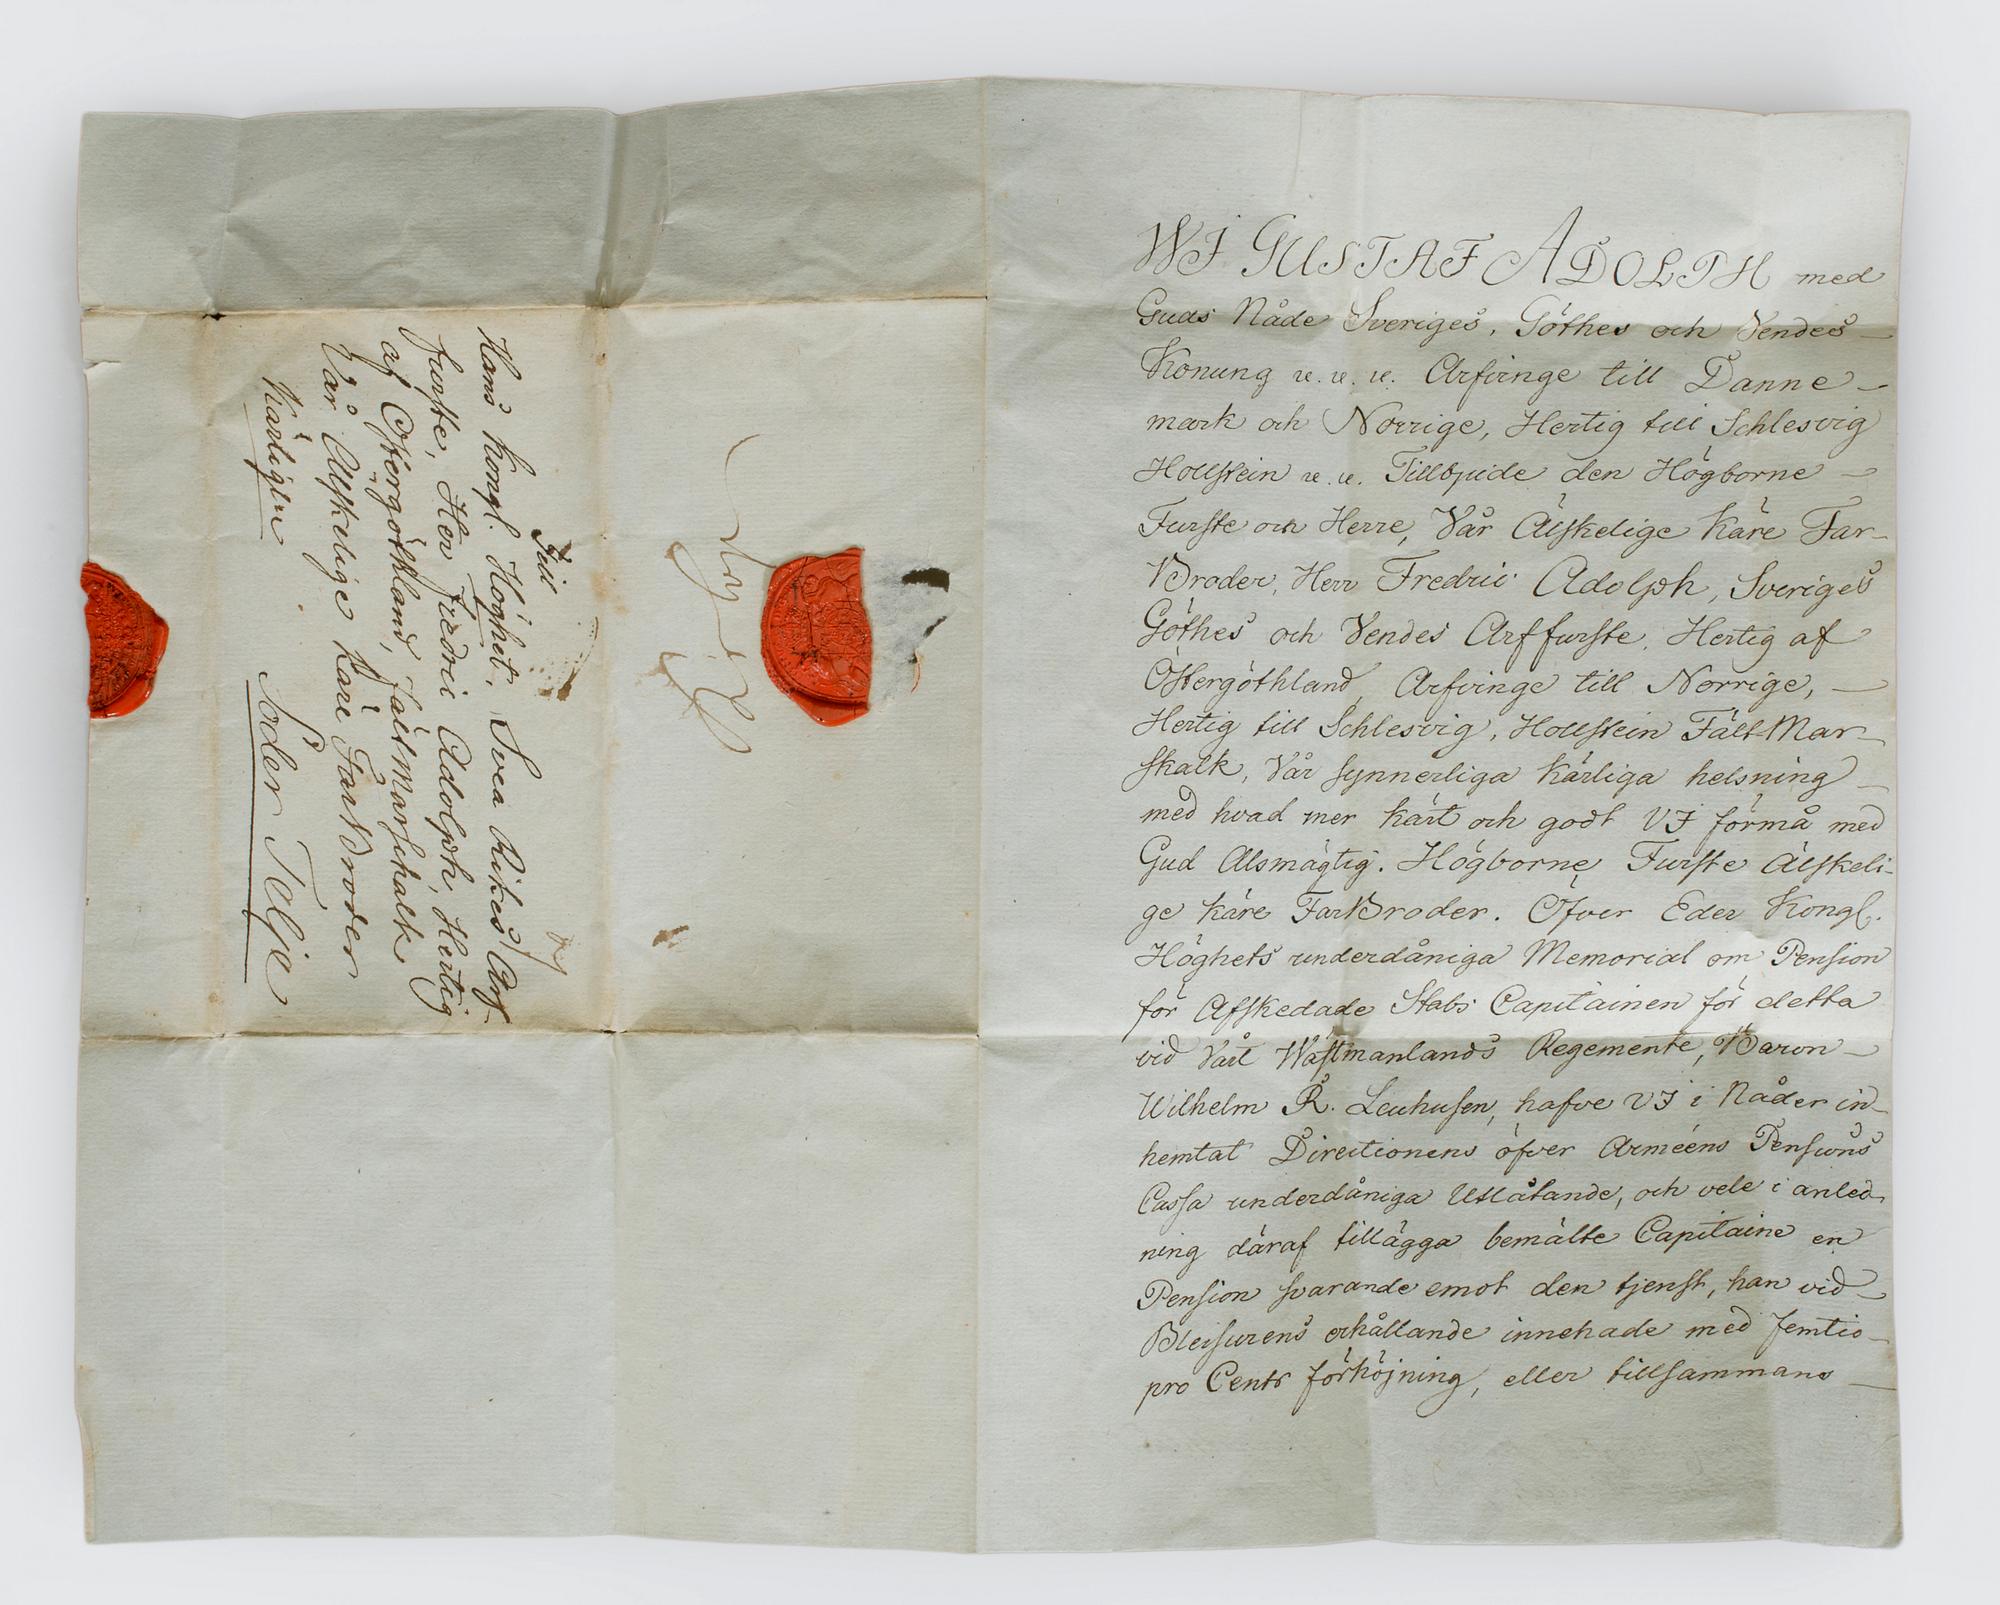 WJ GUSTAF ADOLPH med
Guds Nåde Sveriges, Göthes och Vendes
Konung &c. &c. &c. Arfvinge till Danne-
mark och Norrige, Hertig till Schlesvig
Hollstein &c. &c. Tillbjude den Högborne
Furste och Herre, Vår Älskelige Käre Far-
Broder, Herr Fredric Adolph, Sveriges
Göthes och Vendes Arffurste, Hertig af
Östergöthland, Arfvinge till Norrige,
Hertig till Schlesvig, Hollstein Fält-Mar-
skalk, Vår synnerliga kärliga helsning
med hvad mer kärt och godt VJ förmå med
Gud Alsmägtig. Högborne Furste Älskeli-
ge käre FarBroder. Öfver Eder Kongl.
Höghets underdåniga Memorial om Pension
för Afskedade Stabs Capitainen för detta
vid Vårt Wästmanlands Regemente, Baron
Wilhelm R. Leuhusen, hafve VJ i Nåder in-
hemtat Directionens öfver Arméens Pensions
Cassa underdåniga Utlåtande, och vele i anled-
ning däraf tillägga bemälte Capitaine en
Pension svarande emot den tjenst, han vid
Bleisurens erhållande innehade med femtio
pro Cents förhöjning, eller tillsammans
Till
Hans Kongl. Höghet, Svea Rikes Arf-
furste, Herr Fredric Adolph, Hertig
af Östergöthland, FältMarschalk
Vår Älskelige Käre FarBroder
Kärligen
Söder Telje